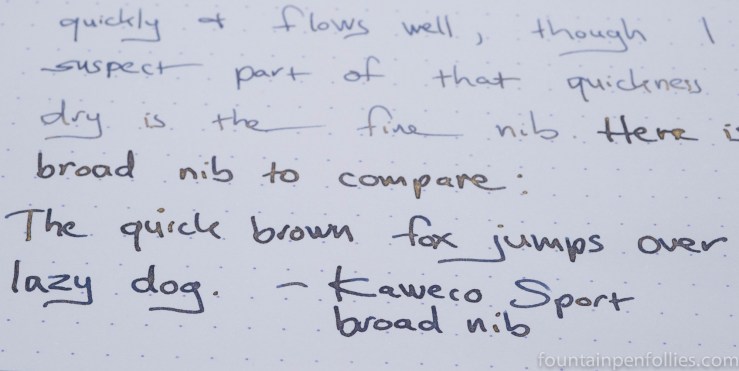 quickly + flows well, though I
suspect part of that quickness
dry is the fine nib. Here is
broad nib to compare:
The quick brown fox jumps over
lazy dog. – Kaweco Sport
broad nib
fountainpenfollies.com